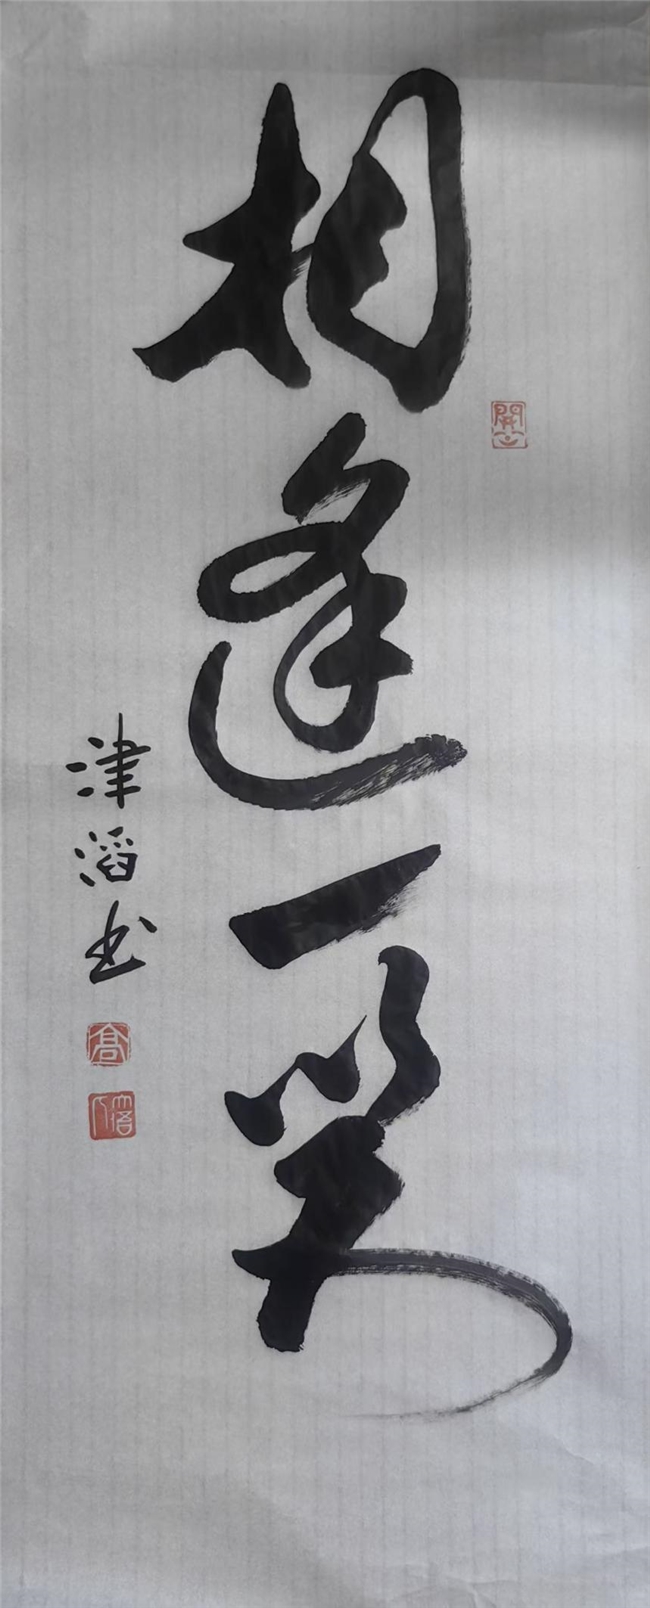 相逢一笑
津滔书
高